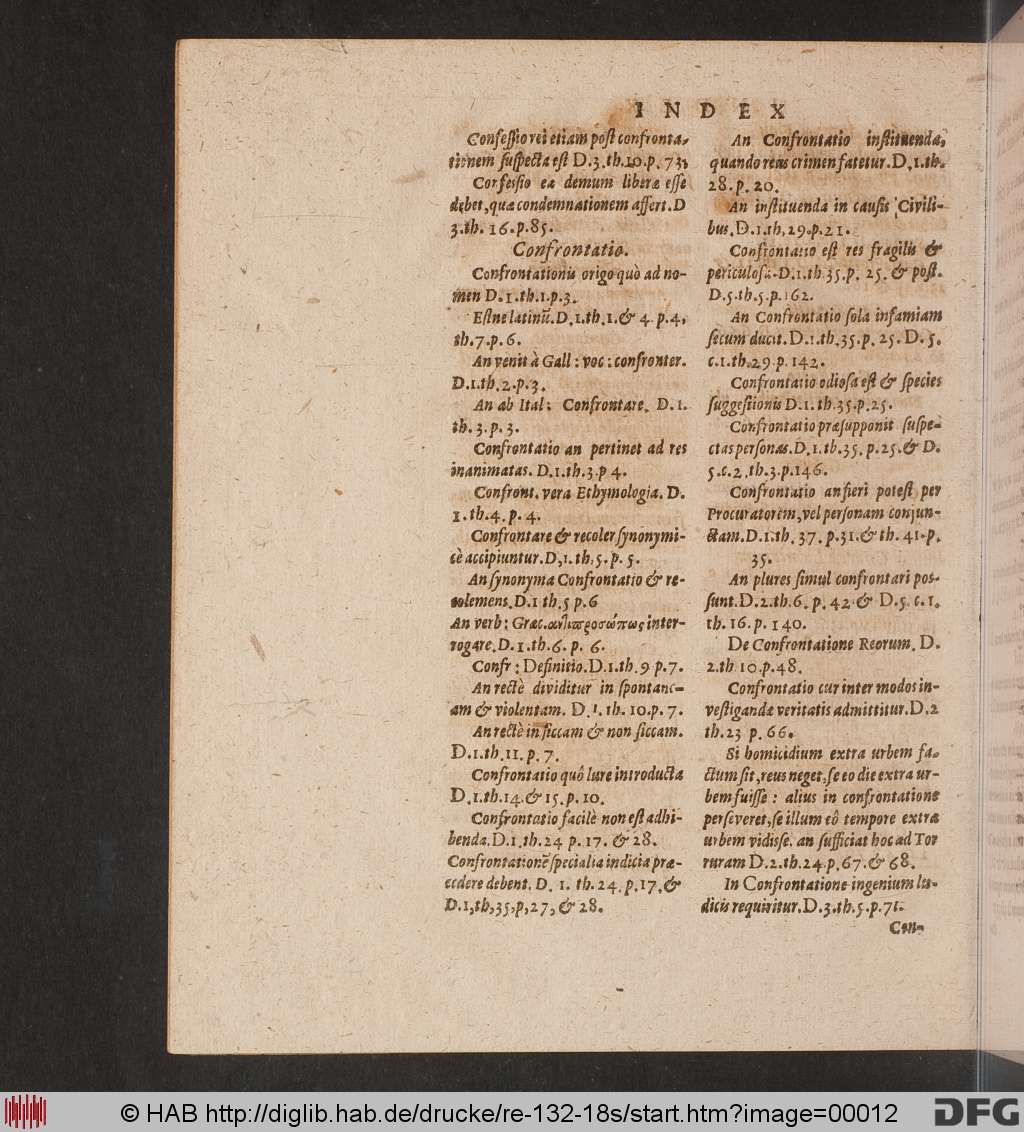 INDEX
Confeſſio rei etiam poſt confronta-
tionem ſuſpecta eſt D.3.th.10.p.73,
Confeſſio ea demum liberæ eſſe
debet, quæ condemnationem aſſert. D
3.th. 16.p.85.
Confrontatio.
Confrontationis origo quò ad no-
men D.1.th.1.p.3.
Eſtne latinũ. D.1.th.1.& 4. p.4,
th.7.p.6.
An venit à Gall: voc: confronter.
D.1.th.2.p.3.
An ab Ital: Confrontare. D.1.
th.3.p.3.
Confrontatio an pertinet ad res
inanimatas. D.1.th.3.p 4.
Confront. vera Ethymologia. D.
1.th.4.p.4.
Confrontare & recoler ſynonymi-
cè accipiuntur. D,1.th.5.p.5.
An ſynonyma Confrontatio & re-
colemens. D.1 th.5 p.6
An verb: Græc. ἀντιπροσώπως inter-
rogare. D.1.th.6.p. 6.
Confr: Definitio. D.1.th.9 p.7.
An rectè dividitur in ſpontane-
am & violentam. D.1.th.10.p.7.
An rectè in ſiccam & non ſiccam.
D.1.th.11.p.7.
Confrontatio quô Iure introducta
D.1.th.14.& 15.p.10.
Confrontatio facilè non eſt adhi-
benda. D.1.th.24 p.17. & 28.
Confrontationẽ ſpecialia indicia præ-
cedere debent. D. 1. th.24.p.17.&
D.1,th,35,p,27,& 28.
An Confrontatio inſtituenda,
quando reus crimen fatetur. D.1.th.
28.p.20.
An inſtituenda in cauſis Civili-
bus. D.1.th,29.p.21.
Confrontatio eſt res fragilis &
periculoſa. D.1.th.35.p. 25. & poſt.
D.5.th.5.p.162.
An Confrontatio ſola infamiam
ſecum ducit. D.1.th.35.p.25. D.5.
c.1.th.29.p.142.
Confrontatio odioſa eſt & ſpecies
ſuggeſtionis D.1.th.35.p.25.
Confrontatio præſupponit ſuſpe-
ctas perſonas. D.1.th.35. p.25.& D.
5.c.2.th.3.p.146.
Confrontatio an fieri poteſt per
Procuratorem, vel perſonam conjun-
ctam. D.1.th. 37. p.31.& th. 41.p.
35.
An plures ſimul confrontari poſ-
ſunt. D.2.th.6. p. 42 & D.5. c.1.
th.16.p. 140.
De Confrontatione Reorum. D.
2.th 10.p.48.
Confrontatio cur inter modos in-
veſtigandæ veritatis admittitur. D.2
th.23 p.66.
Si homicidium extra urbem fa-
ctum ſit, reus neget, ſe eo die extra ur-
bem fuiſſe: alius in confrontatione
perſeveret, ſe illum eô tempore extra
urbem vidiſſe. an ſufficiat hoc ad Tor
turam D.2.th.24.p.67.& 68.
In Confrontatione ingenium Iu-
dicis requiritur. D.3.th.5.p.71.
Con-
© HAB http://diglib.hab.de/drucke/re-132-18s/start.htm?image=00012
DFG